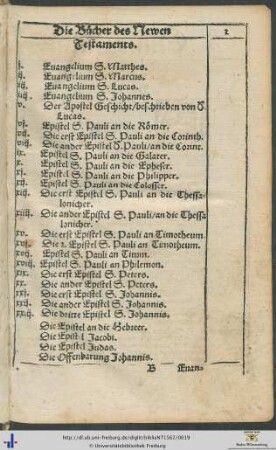 Die Bücher des Newen
Testaments.
1
j. Euangelium S. Matthes.
ij. Euangelium S. Marcus.
iij. Euangelium S. Lucas.
iiij. Euangelium S. Johannes.
v. Der Apostel Geschicht/beschrieben von S.
Lucas.
vj. Epistel S. Pauli an die Römer.
vij. Die erst Epistel S. Pauli an die Corinth.
viij. Die ander Epistel S. Pauli/an die Corint.
ix. Epistel S. Pauli an die Galater.
x. Epistel S. Pauli an die Epheser.
xj. Epistel S. Pauli an die Philipper.
xij. Epistel S. Pauli an die Colosser.
xiij. Die erst Epistel S. Pauli an die Thessa-
lonicher.
xiiij. Die ander Epistel S. Pauli/an die Thessa
lonicher.
xv. Die erst Epistel S. Pauli an Timotheum.
xvj. Die 2. Epistel S. Pauli an Timotheum.
xvij. Epistel S. Pauli an Titum.
xviij. Epistel S. Pauli an Philemon.
xix. Die erst Epistel S. Peters.
xx. Die ander Epistel S. Peters.
xxj. Die erst Epistel S. Johannis.
xxij. Die ander Epistel S. Johannis.
xxiij. Die dritte Epistel S. Johannis.
Die Epistel an die Hebreer.
Die Epistel Jacobi.
Die Epistel Judas.
Die Offenbarung Johannis.
B Euan-
http://dl.ub.uni-freiburg.de/diglit/bibleNT1562/0019
© Universitätsbibliothek Freiburg
Baden-Württemberg